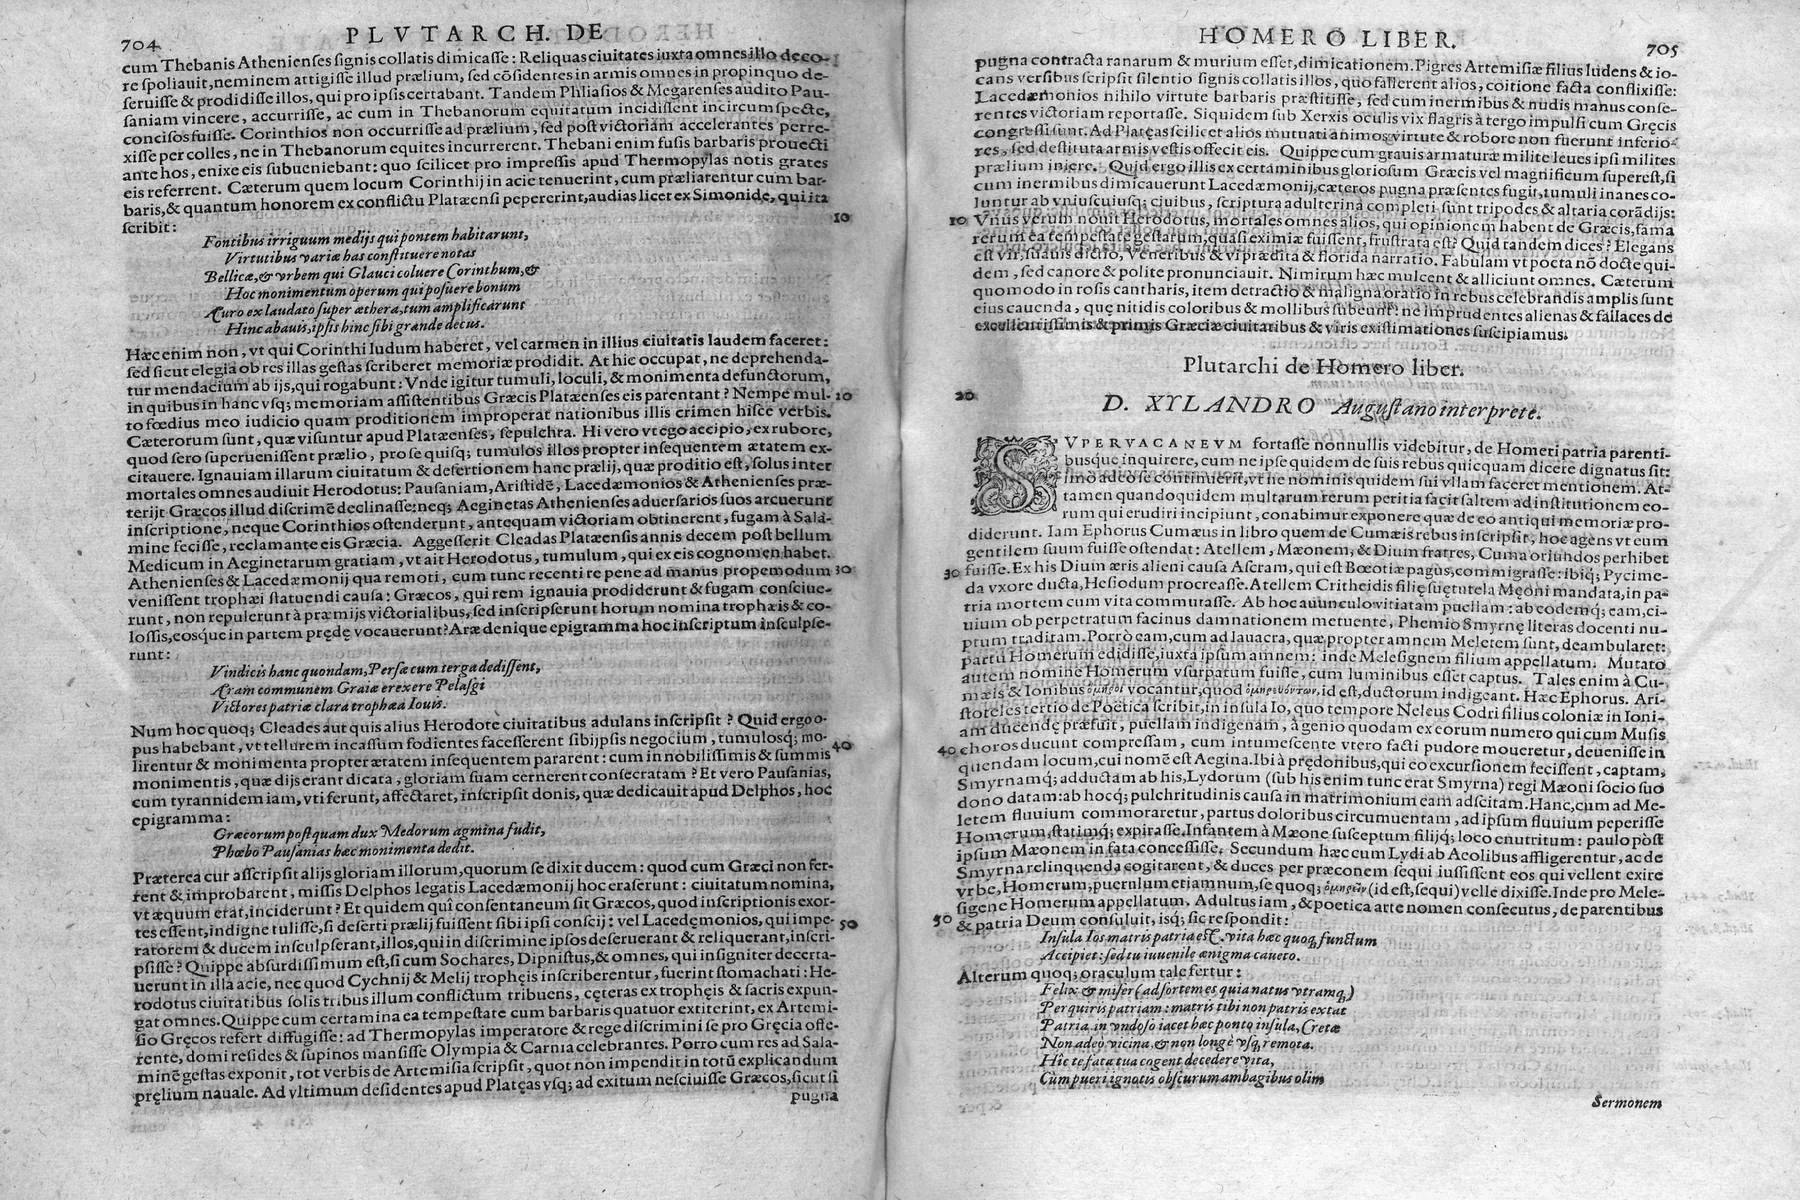 704
PLVTARCH. DE
cum Thebanis Athenienses signis collatis dimicasse: Reliquas ciuitates iuxta omnes illo deco-
re spoliauit, neminem attigisse illud prælium, sed cõsidentes in armis omnes in propinquo de-
seruisse & prodidisse illos, qui pro ipsis certabant. Tandem Phliasios & Megarenses audito Pau-
saniam vincere, accurrisse, ac cum in Thebanorum equitatum incidissent incircumspecte,
concisos fuisse. Corinthios non occurrisse ad prælium, sed post victoriam accelerantes perre-
xisse per colles, ne in Thebanorum equites incurrerent. Thebani enim fusis barbaris prouecti
ante hos, enixe eis subueniebant: quo scilicet pro impressis apud Thermopylas notis grates
eis referrent. Cæterum quem locum Corinthij in acie tenuerint, cum præliarentur cum bar-
baris, & quantum honorem ex conflictu Platæensi pepererint, audias licet ex Simonide, qui ita
scribit:
10
Fontibus irriguum medijs qui pontem habitarunt,
Virtutibus variæ has constituere notas
Bellicæ, & vrbem qui Glauci coluere Corinthum, &
Hoc monimentum operum qui posuere bonum
Auro ex laudato super æthera, tum amplificarunt
Hinc abauis, ipsis hinc sibi grande decus.
Hæc enim non, vt qui Corinthi ludum haberet, vel carmen in illius ciuitatis laudem faceret:
sed sicut elegia ob res illas gestas scriberet memoriæ prodidit. At hic occupat, ne deprehenda-
tur mendacium ab ijs, qui rogabunt: Vnde igitur tumuli, loculi, & monimenta defunctorum,
in quibus in hanc vsq; memoriam assistentibus Græcis Platæenses eis parentant? Nempe mul- 20
to fœdius meo iudicio quam proditionem improperat nationibus illis crimen hisce verbis.
Cæterorum sunt, quæ visuntur apud Platæenses, sepulchra. Hi vero vt ego accipio, ex rubore,
quod sero superuenissent prælio, pro se quisq; tumulos illos propter insequentem ætatem ex-
citauere. Ignauiam illarum ciuitatum & desertionem hanc prælij, quæ proditio est, solus inter
mortales omnes audiuit Herodotus: Pausaniam, Aristidẽ, Lacedæmonios & Athenienses præ-
terijt Græcos illud discrimẽ declinasse: neq; Aeginetas Athenienses aduersarios suos arcuerunt
inscriptione, neque Corinthios ostenderunt, antequam victoriam obtinerent, fugam à Sala-
mine fecisse, reclamante eis Græcia. Aggesserit Cleadas Platæensis annis decem post bellum
Medicum in Aeginetarum gratiam, vt ait Herodotus, tumulum, qui ex eis cognomen habet.
Athenienses & Lacedæmonij qua remoti, cum tunc recenti re pene ad manus propemodum 30
venissent trophæi statuendi causa: Græcos, qui rem ignauia prodiderunt & fugam consciue-
runt, non repulerunt à præmijs victorialibus, sed inscripserunt horum nomina trophæis & co-
lossis, eosque in partem prędę vocauerunt? Aræ denique epigramma hoc inscriptum insculpse-
runt:
Vindicis hanc quondam, Persæ cum terga dedissent,
Aram communem Graiæ erexere Pelasgi
Victores patriæ clara trophæa Iouis.
Num hoc quoq; Cleades aut quis alius Herodote ciuitatibus adulans inscripsit? Quid ergo o-
pus habebant, vt tellurem incassum fodientes facesserent sibijpsis negocium, tumulosq; mo- 40
lirentur & monimenta propter ætatem insequentem pararent: cum in nobilissimis & summis
monimentis, quæ dijs erant dicata, gloriam suam cernerent consecratam? Et vero Pausanias,
cum tyrannidem iam, vti ferunt, affectaret, inscripsit donis, quæ dedicauit apud Delphos, hoc
epigramma:
Græcorum postquam dux Medorum agmina fudit,
Phœbo Pausanias hæc monimenta dedit.
Præterea cur asscripsit alijs gloriam illorum, quorum se dixit ducem: quod cum Græci non fer-
rent & improbarent, missis Delphos legatis Lacedæmonij hoc eraserunt: ciuitatum nomina,
vt æquum erat, inciderunt? Et quidem quî consentaneum sit Græcos, quod inscriptionis exor-
tes essent, indigne tulisse, si deserti prælij fuissent sibi ipsi conscij: vel Lacedęmonios, qui impe- 50
ratorem & ducem insculpserant, illos, qui in discrimine ipsos deseruerant & reliquerant, inscri-
psisse? Quippe absurdissimum est, si cum Sochares, Dipnistus, & omnes, qui insigniter decerta-
uerunt in illa acie, nec quod Cychnij & Melij trophęis inscriberentur, fuerint stomachati: He-
rodotus ciuitatibus solis tribus illum conflictum tribuens, cęteras ex trophęis & sacris expun-
gat omnes. Quippe cum certamina ea tempestate cum barbaris quatuor extiterint, ex Artemi-
sio Gręcos refert diffugisse: ad Thermopylas imperatore & rege discrimini se pro Gręcia offe-
rente, domi resides & supinos mansisse Olympia & Carnia celebrantes. Porro cum res ad Sala-
minẽ gestas exponit, tot verbis de Artemisia scripsit, quot non impendit in totũ explicandum
pręlium nauale. Ad vltimum desidentes apud Platęas vsq; ad exitum nesciuisse Græcos, sicut si
pugna
HOMERO LIBER.
705
pugna contracta ranarum & murium esset, dimicationem. Pigres Artemisiæ filius ludens & io-
cans versibus scripsit silentio signis collatis illos, quo fallerent alios, coitione facta conflixisse:
Lacedæmonios nihilo virtute barbaris præstitisse, sed cum inermibus & nudis manus conse-
rentes victoriam reportasse. Siquidem sub Xerxis oculis vix flagris à tergo impulsi cum Gręcis
congressi sunt. Ad Platęas scilicet alios mutuati animos virtute & robore non fuerunt inferio-
res, sed destituta armis vestis offecit eis. Quippe cum grauis armaturæ milite leues ipsi milites
prælium iniere. Quid ergo illis ex certaminibus gloriosum Græcis vel magnificum superest, si
cum inermibus dimicauerunt Lacedæmonij, cæteros pugna præsentes fugit, tumuli inanes co-
luntur ab vniuscuiusq; ciuibus, scriptura adulterina completi sunt tripodes & altaria corã dijs:
10 Vnus verum nouit Herodotus, mortales omnes alios, qui opinionem habent de Græcis, fama
rerum ea tempestate gestarum, quasi eximiæ fuissent, frustrata est? Quid tandem dices? Elegans
est vir, suauis dictio, Veneribus & vi prædita & florida narratio. Fabulam vt poeta nõ docte qui-
dem, sed canore & polite pronunciauit. Nimirum hæc mulcent & alliciunt omnes. Cæterum
quomodo in rosis cantharis, item detractio & maligna oratio in rebus celebrandis amplis sunt
eius cauenda, quę nitidis coloribus & mollibus subeunt: ne imprudentes alienas & fallaces de
excellentissimis & primis Græciæ ciuitatibus & viris existimationes suscipiamus.
Plutarchi de Homero liber.
20
D. XYLANDRO Augustano interprete.
SVPERVACANEVM fortasse nonnullis videbitur, de Homeri patria parenti-
busque inquirere, cum ne ipse quidem de suis rebus quicquam dicere dignatus sit:
imò adeo se continuerit, vt he nominis quidem sui vllam faceret mentionem. At-
tamen quandoquidem multarum rerum peritia facit saltem ad institutionem eo-
rum qui erudiri incipiunt, conabimur exponere quæ de eo antiqui memoriæ pro-
diderunt. Iam Ephorus Cumæus in libro quem de Cumæis rebus inscripsit, hoc agens vt eum
gentilem suum fuisse ostendat: Atellem, Mæonem, & Dium fratres, Cuma oriundos perhibet
30 fuisse. Ex his Dium æris alieni causa Ascram, qui est Bœotiæ pagus, commigrasse: ibiq; Pycime-
da vxore ducta, Hesiodum procreasse. Atellem Critheidis filię suę tutela Męoni mandata, in pa-
tria mortem cum vita commutasse. Ab hoc auunculo vitiatam puellam: ab eodemq; eam, ci-
uium ob perpetratum facinus damnationem metuente, Phemio Smyrnę literas docenti nu-
ptum traditam. Porrò eam, cum ad lauacra, quæ propter amnem Meletem sunt, deambularet:
partu Homerum edidisse, iuxta ipsum amnem: inde Melesignem filium appellatum. Mutato
autem nomine Homerum vsurpatum fuisse, cum luminibus esset captus. Tales enim à Cu-
mæis & Ionibus ὅμηροι vocantur, quod ὁμηρευόντων, id est, ductorum indigeant. Hæc Ephorus. Ari-
stoteles tertio de Poëtica scribit, in insula Io, quo tempore Neleus Codri filius coloniæ in Ioni-
am ducendę præfuit, puellam indigenam, à genio quodam ex eorum numero qui cum Musis
40 choros ducunt compressam, cum intumescente vtero facti pudore moueretur, deuenisse in
quendam locum, cui nomẽ est Aegina. Ibi à prędonibus, qui eo excursionem fecissent, captam,
Smyrnamq; adductam ab his, Lydorum (sub his enim tunc erat Smyrna) regi Mæoni socio suo
dono datam: ab hocq; pulchritudinis causa in matrimonium eam adscitam. Hanc, cum ad Me-
letem fluuium commoraretur, partus doloribus circumuentam, ad ipsum fluuium peperisse
Homerum, statimq; expirasse. Infantem à Mæone susceptum filijq; loco enutritum: paulo pòst
ipsum Mæonem in fata concessisse. Secundum hæc cum Lydi ab Aeolibus affligerentur, ac de
Smyrna relinquenda cogitarent, & duces per præconem sequi iussissent eos qui vellent exire
vrbe, Homerum, puerulum etiamnum, se quoq; ὁμηρεῖν (id est, sequi) velle dixisse. Inde pro Mele-
sigene Homerum appellatum. Adultus iam, & poëtica arte nomen consecutus, de parentibus
50 & patria Deum consuluit, isq; sic respondit:
Insula Ios matris patria est, vita hæc quoq; functum
Accipiet: sed tu iuuenile ænigma caueto.
Alterum quoq; oraculum tale fertur:
Felix & miser (ad sortem es quia natus vtramq;)
Perquiris patriam: matris tibi non patris extat
Patria, in vndoso iacet hæc ponto insula, Cretæ
Non adeò vicina, & non longè vsq; remota.
Hîc te fata tua cogent decedere vita,
Cùm pueri ignotis obscurum ambagibus olim
Sermonem